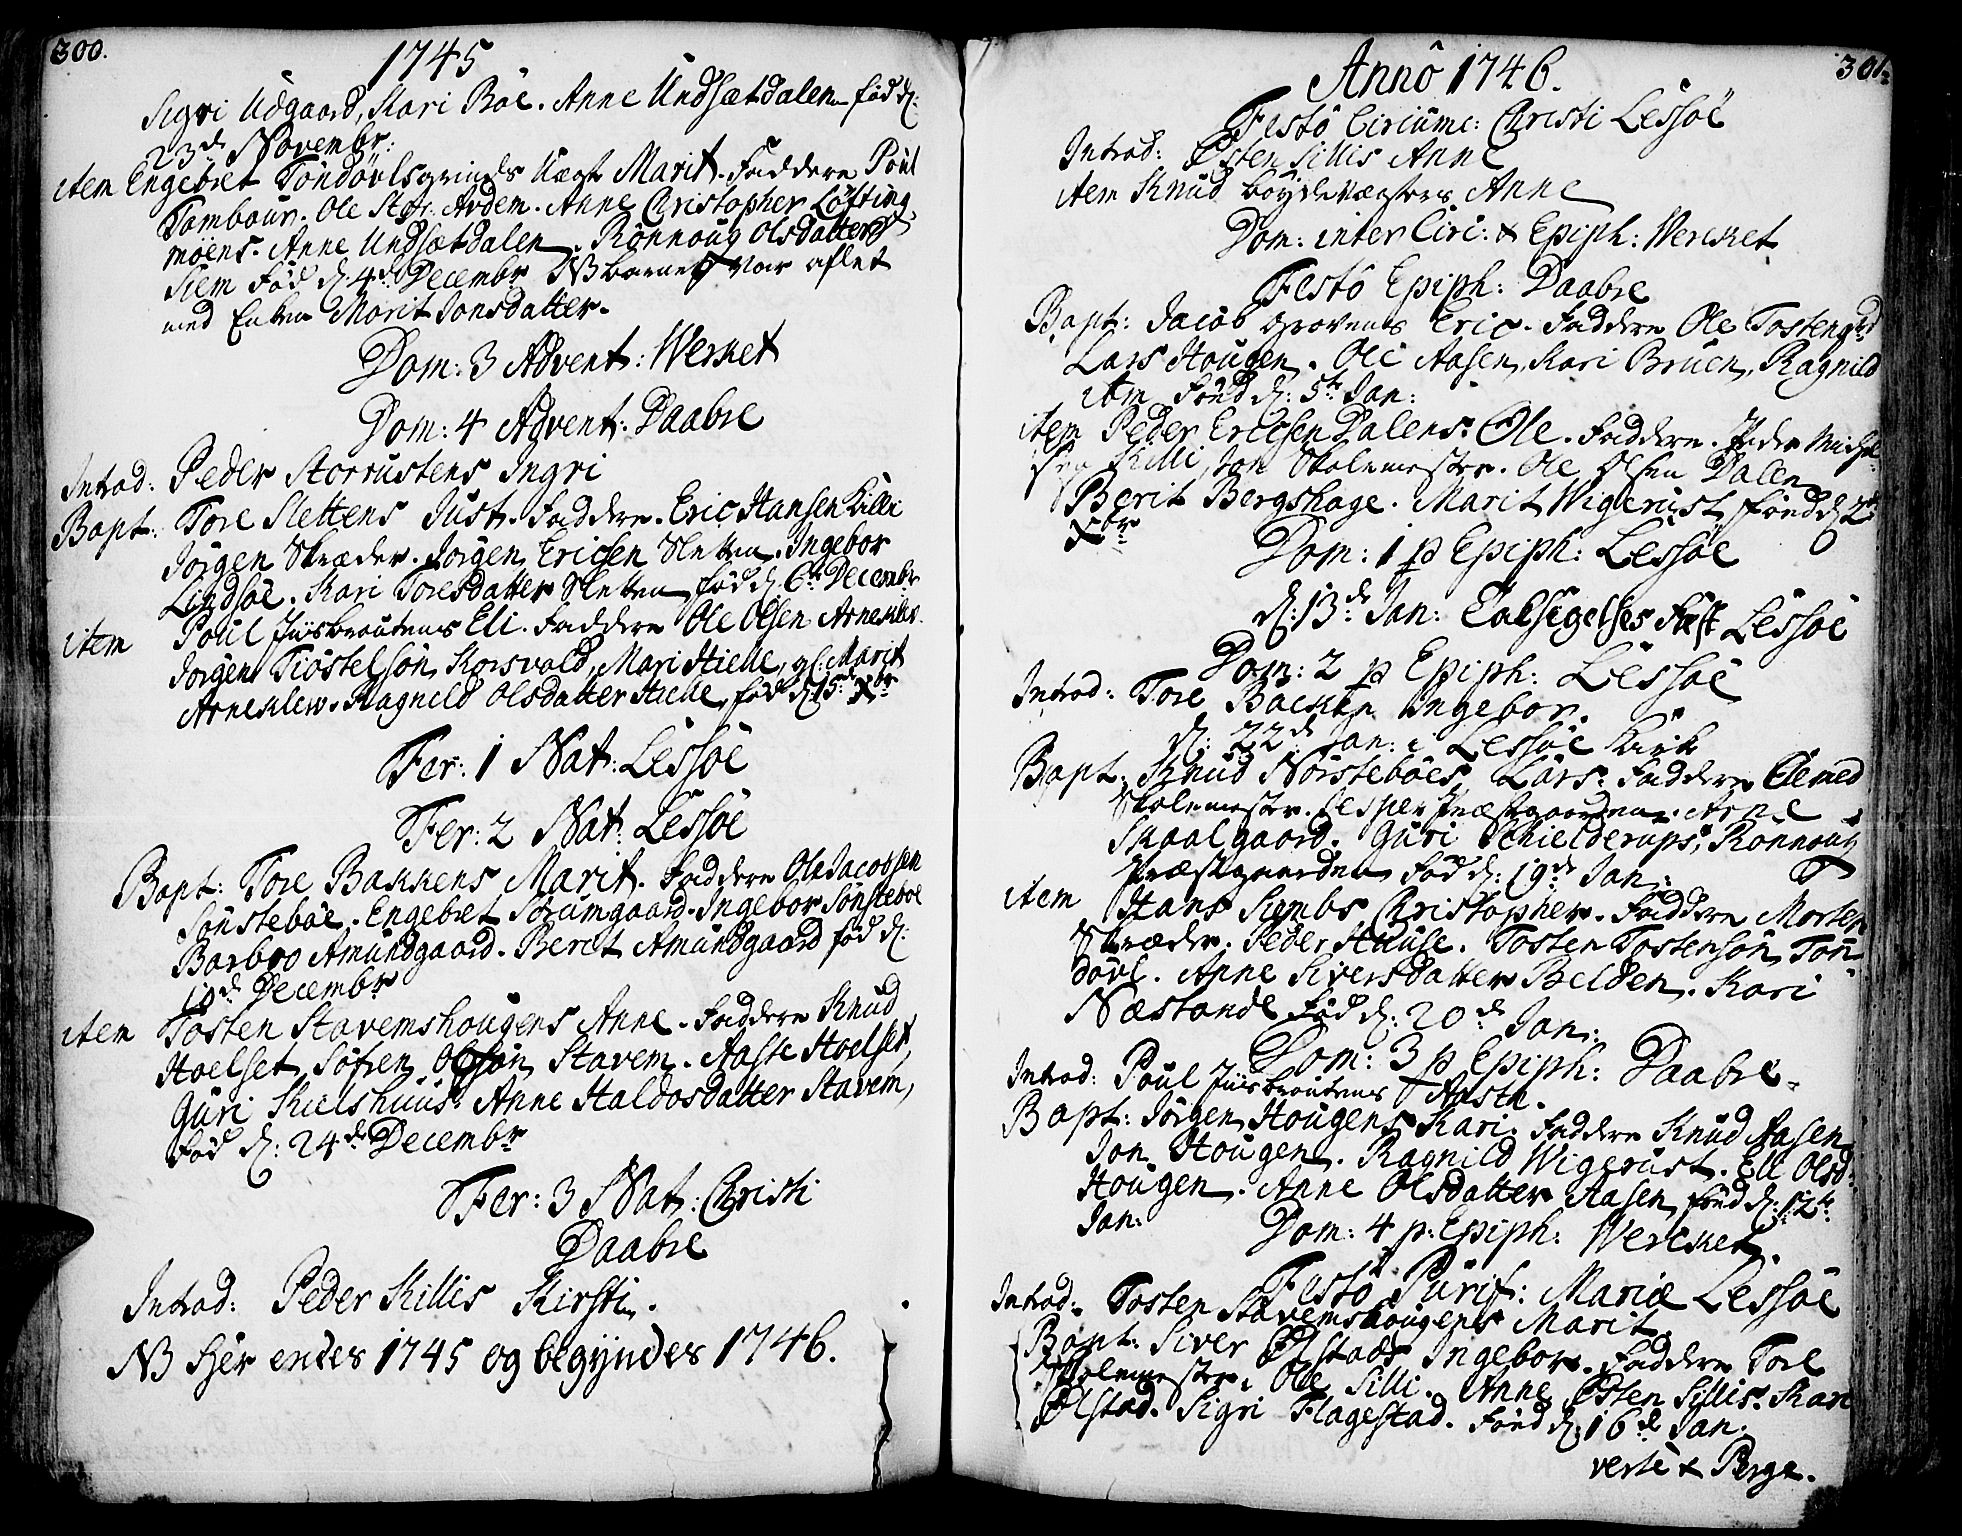 300.
1745
Sigri Udgaard, Kari Böe. Anne Undsætdalen född d:
23de Novembr:
item Engebret Töndövls Marit. Faddere Poul
Tambour. Ole Ardem. Anne Christopher Löfting
möens. Anne Undsætdalen. Rönnoug Olsdatter
Siem Föd d: 4de Decembr NB barnet var aflet
med Enken Marit Jonsdatter.
Dom: 3 Advent: Werket
Dom: 4 Advent: Daabre
Introd: Peder Storrustens Ingri
Bapt: Tore Slettens Just. Faddere. Eric Hansen Killi
Jörgen Skræder. Jörgen Ericsen Sletten. Ingebor
Lindsöe. Kari Toresdatter Sletten föd d: 6te Decembr
item Poul Jiisbroutens Eli. Faddere Ole Olsen Arneklev.
Jörgen Tiöstelsön Korsvold, Mari Hielle, gl: Marit
Arneklew. Ragnild Olsdatter Hielle, föd d: 15de Xbr
Fer: 1 Nat: Lessöe
Fer: 2 Nat: Lessöe
Bapt: Tore Bakkens Marit. Faddere Ole Jacobsen
Sönsteböe. Engebret Sörumgaard. Ingebor Sönsteböe
Barbro Amundgaard. Beret Amundgaard föd d:
10de Decembr
item Tosten Stavemshougens Anne. Faddere Knud
Hoelset, Söfren Olsön Stavem. Aaste Hoelset,
Guri Kielshuus. Anne Haldosdatter Stavem,
föd d: 24de Decembr
Fer: 3 Nat: Christi
Daabre
Introd: Peder Killis Kirsti.
NB Her endes 1745 og begyndes 1746.
301.
Annô 1746.
Festô Circumc: Christi Lessöe
Introd: Östen Sillis Anne
item Knud Anne
Dom: inter Circ: & Epiph: Wercket
Festô Epiph: Daabre
Bapt: Jacob Grovens Eric. Faddere Ole Tostengrd
Lars Hougen. Ole Aasen, Kari Bruen, Ragnild
item Föed d: 5te Jan:
item Peder Ericsen Dalens Ole. Faddere. Peder Michel-
sen Killi, Jon Skolemester. Ole Olsen Dalen
Berit Bergshage. Marit Wigerust, föed d: 2de
Xbr
Dom: 1 p Epiph: Lessöe
d: 13de Jan: Lessöe
Dom: 2 p Epiph: Lessöe
Introd: Tore Backen Ingebor.
d: 22de Jan: i Lessöe Kirk
Bapt: Knud Nörsteböes Lars. Faddere Clemed
Skolemester. Jesper Præstgaarden. Arne
Skaalgaard. Guri Schielderups, Rönnoug
Præstgaarden föd d: 19de Jan:
item Hans Siembs Christopher. Faddere Morten
Skræder. Peder Huuse. Tosten Tostensön Tön-
dövl. Anne Siversdatter Belden. Kari
Næstande föd d: 20de Jan:
Dom: 3 p Epiph: Daabre.
Introd: Poul Jiisbroutens Aaste.
Bapt: Jörgen Hougens Kari. Faddere Knud Aasen
Jon Hougen. Ragnild Wigerust. Eli Olsd:
Hougen. Anne Olsdatter Aasen, föed d: 12te
Jan:
Dom: 4 p: Epiph: Wercket.
Festô Purif: Mariæ Lessöe
Introd: Tosten Stavemshougens Marit.
Bapt: Siver Ölstads Ingebor. Faddere Tore
Skolemester. Ole Silli. Anne Östen Sillis. Kari
Ölstad. Sigri Flagestad. Föed d: 16de Jan:
verte & Perge.